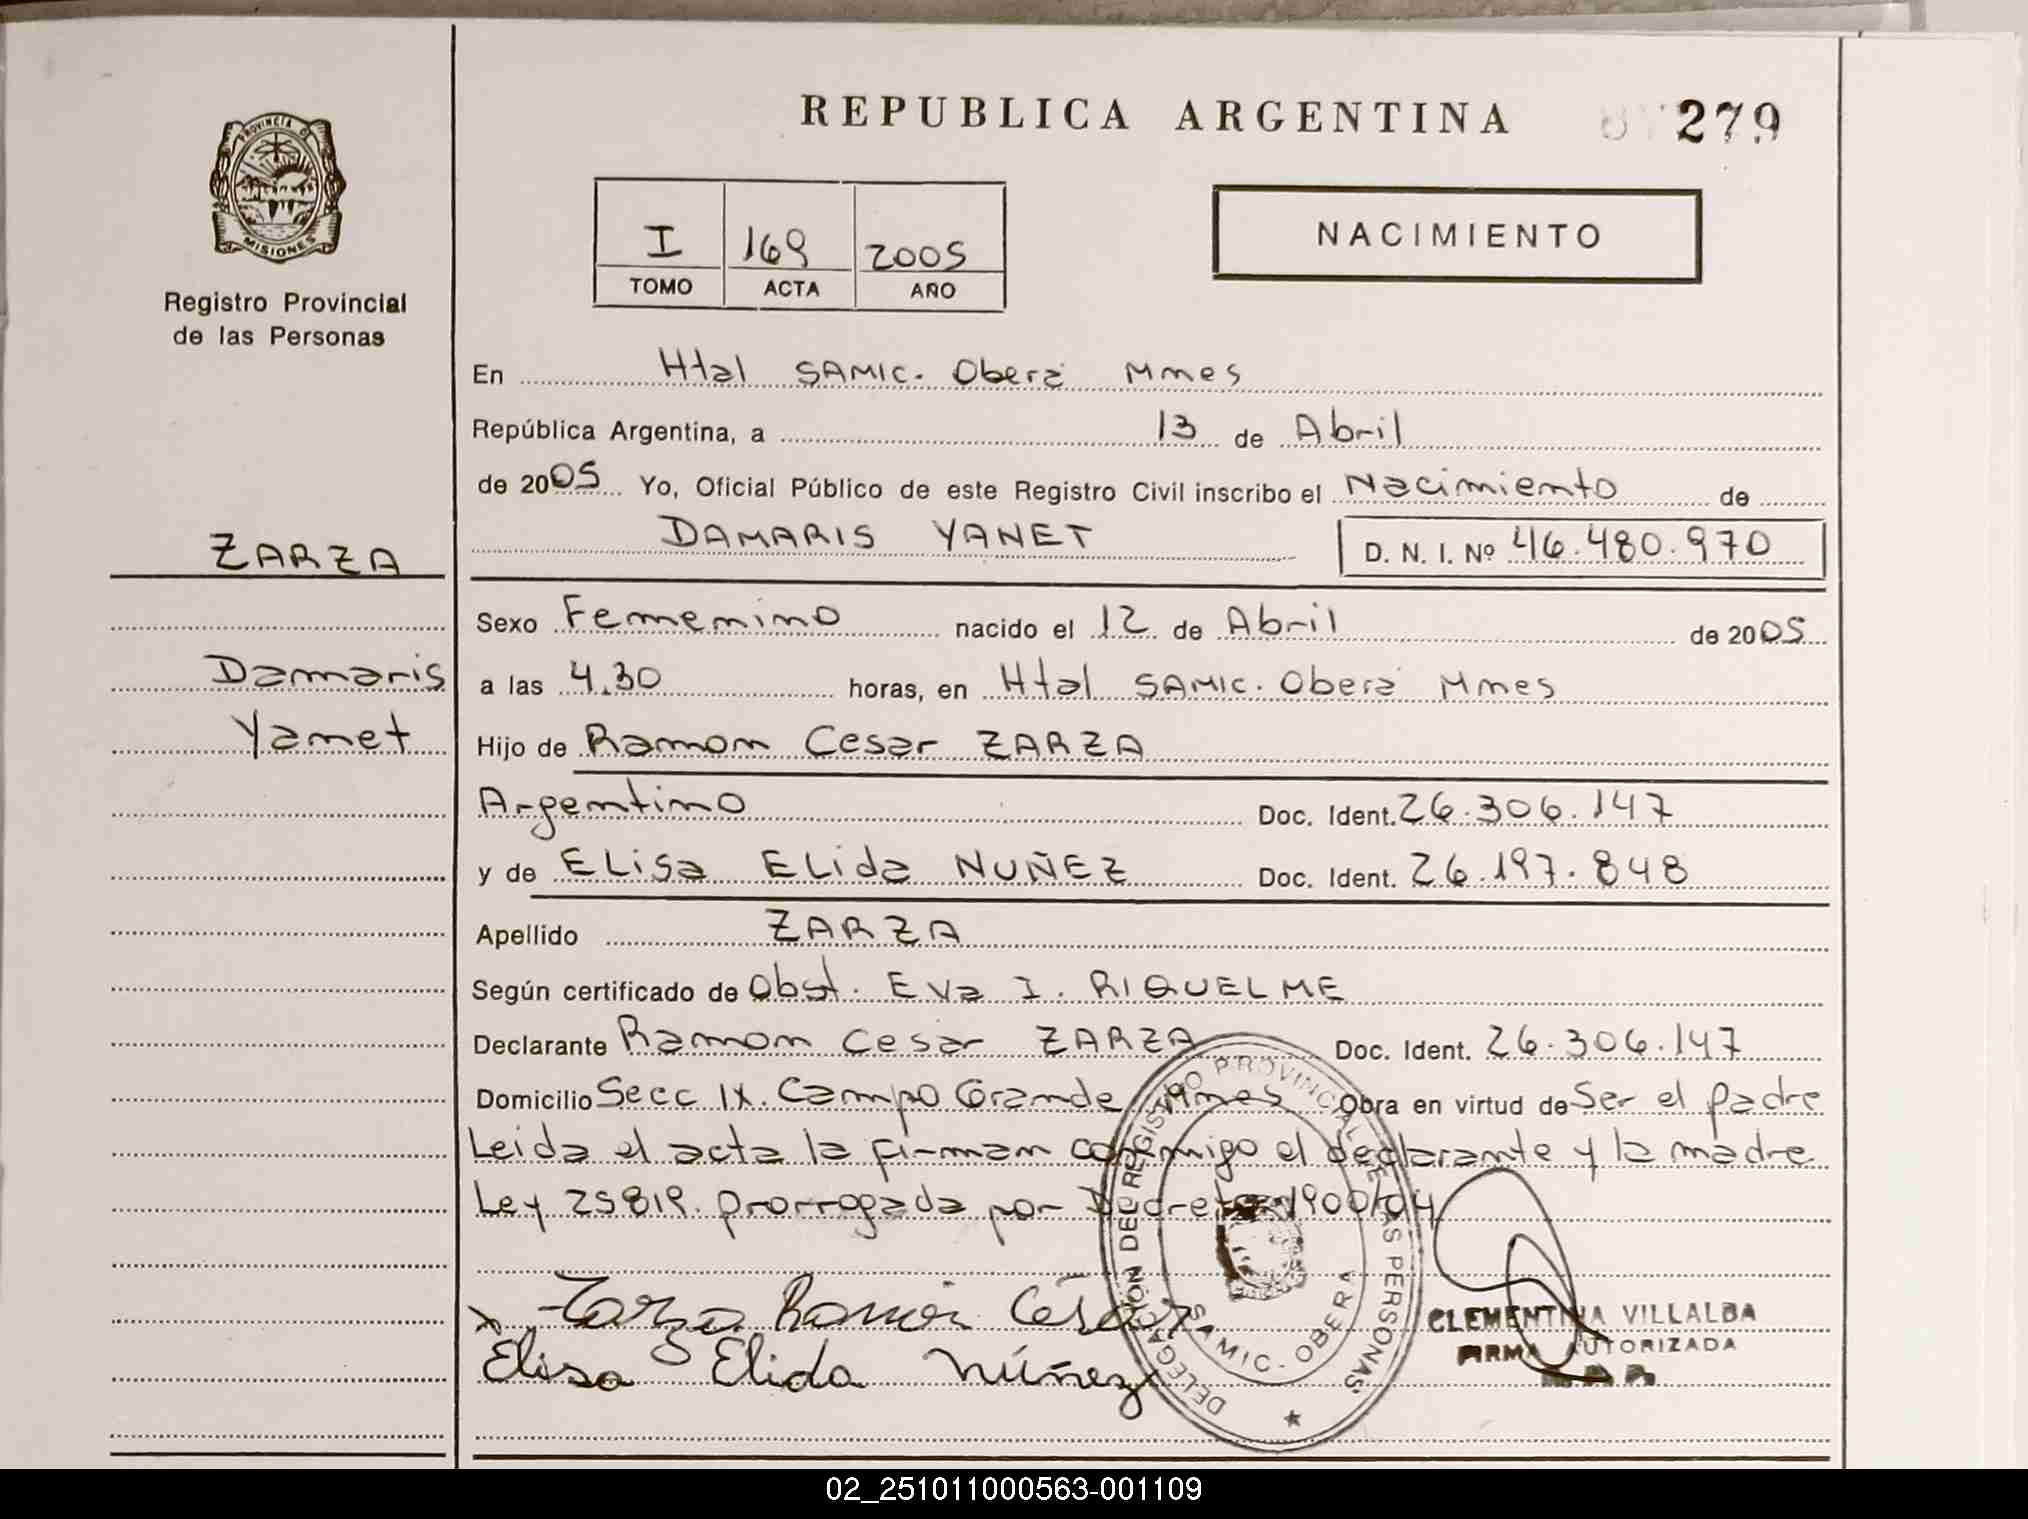 REPUBLICA ARGENTINA
279
PROVINCIA D
MISIONES
Registro Provincial
de las Personas
I 169 2005
TOMO ACTA AÑO
NACIMIENTO
En Htal SAMIC. Oberá Mnes
República Argentina, a 13 de Abril
de 2005 Yo, Oficial Público de este Registro Civil inscribo el Nacimiento de
DAMARIS YANET D. N. I. Nº 46.480.970
ZARZA
Damaris
Yanet
Sexo Femenino nacido el 12 de Abril de 2005
a las 4.30 horas, en Htal SAMIC. Oberá Mnes
Hijo de Ramon Cesar ZARZA
Argentino Doc. Ident. 26.306.147
y de ELisa ELida NUÑEZ Doc. Ident. 26.197.848
Apellido ZARZA
Según certificado de Obst. Eva I. RIQUELME
Declarante Ramon Cesar ZARZA Doc. Ident. 26.306.147
Domicilio Secc IX. Campo Grande Mnes Obra en virtud de Ser el padre
Leida el acta la firman conmigo el declarante y la madre
Ley 25819. prorrogada por Decreto 1900/04
Zarza Ramón César
Elisa Elida Núñez
DELEGACIÓN DEL REGISTRO PROVINCIAL DE LAS PERSONAS
SAMIC. OBERA
CLEMENTINA VILLALBA
FIRMA AUTORIZADA
02_251011000563-001109